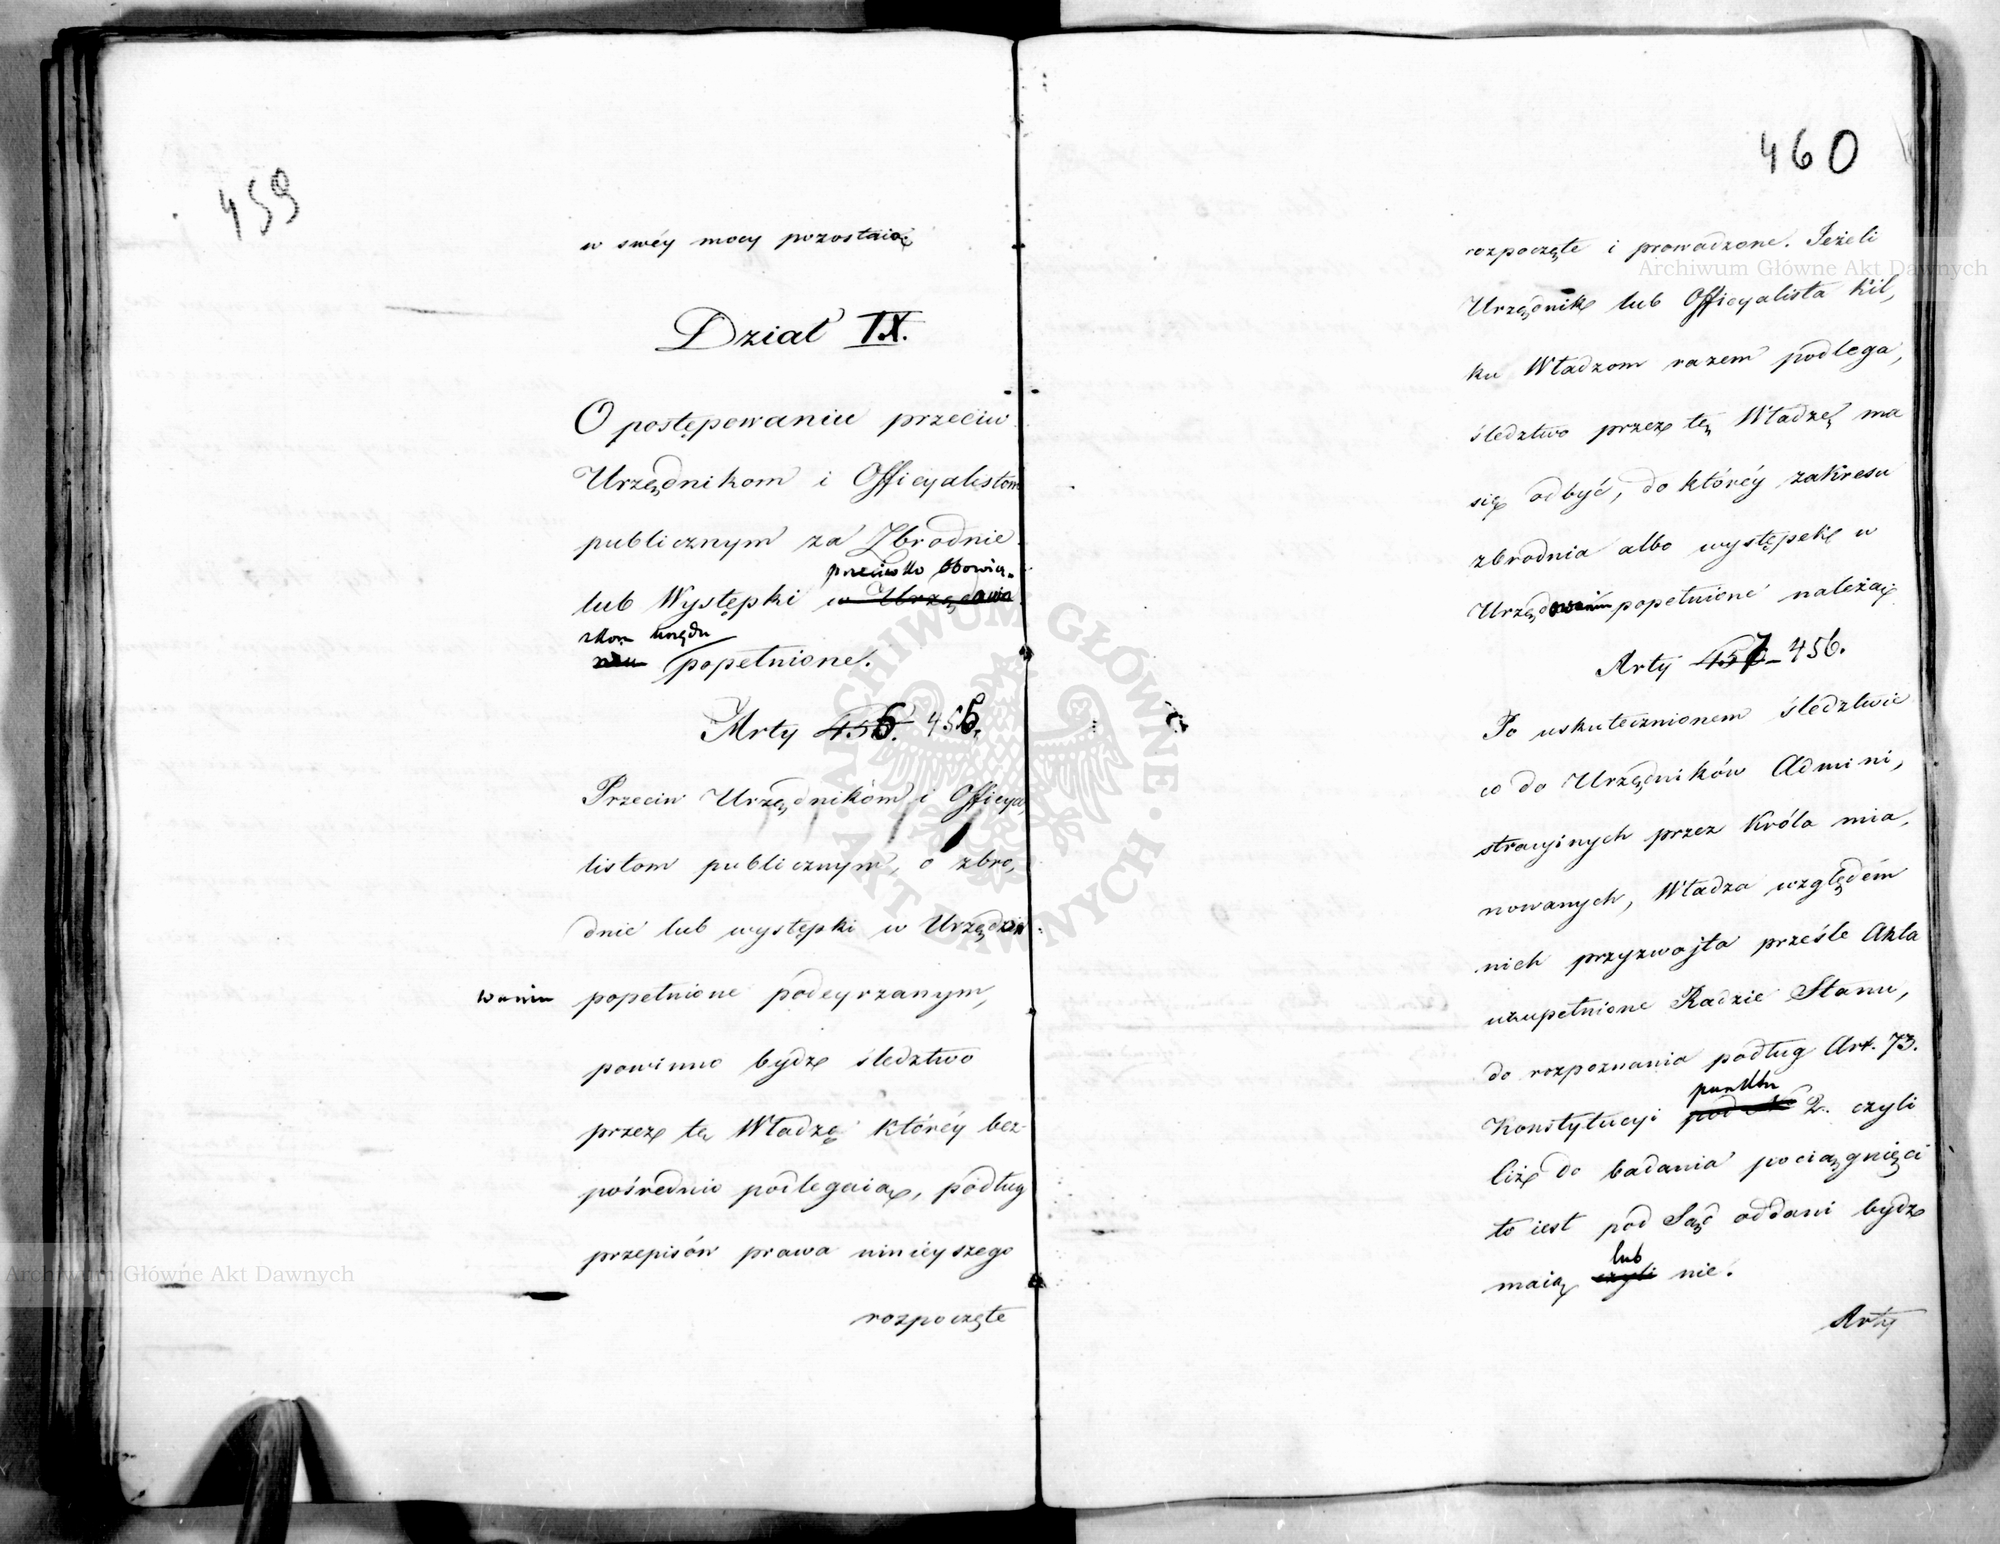 459
w swéy mocy pozostaią
Dział IX.
O postępowaniu przeciw
Urzędnikom i Officyalistom
publicznym za Zbrodnie
przeciwko obowią-
lub Występki w Urzędowa
zkom urzędu
niu popełnione.
Arty 456. 455.
Przeciw Urzędnikóm i Officya,
listom publicznym, o zbro,
dnie lub występki w Urzędo
waniu popełnione podeyrzanym,
powinno bydź śledztwo
przez tę Władzę któréy bez
pośrednio podlegaią, podług
przepisów prawa ninieyszego
rozpoczęte
460
rozpoczęte i prowadzone. Jeżeli
Urzędnik lub Officyalista kil,
ku Władzom razem podlega,
śledztwo przez tę Władzę ma
się odbyć, do któréy zakresu
zbrodnia albo występek w
Urzędowaniu popełnione należą
Arty 457 456.
Po uskutecznionem śledztwie
co do Urzędników Admini,
stracyinych przez Króla mia,
nowanych, Władza względém
nich przyzwoita prześle Akta
uzupełnione Radzie Stanu,
do rozpoznania podług Art. 73.
punktu
Konstytucyi pod No 2. czyli
liż do badania pociągnięci
to iest pod Sąd oddani bydź
lub
maią czyli nie.
Arty
Archiwum Główne Akt Dawnych
Archiwum Główne Akt Dawnych
ARCHIWUM GŁÓWNE AKT DAWNYCH